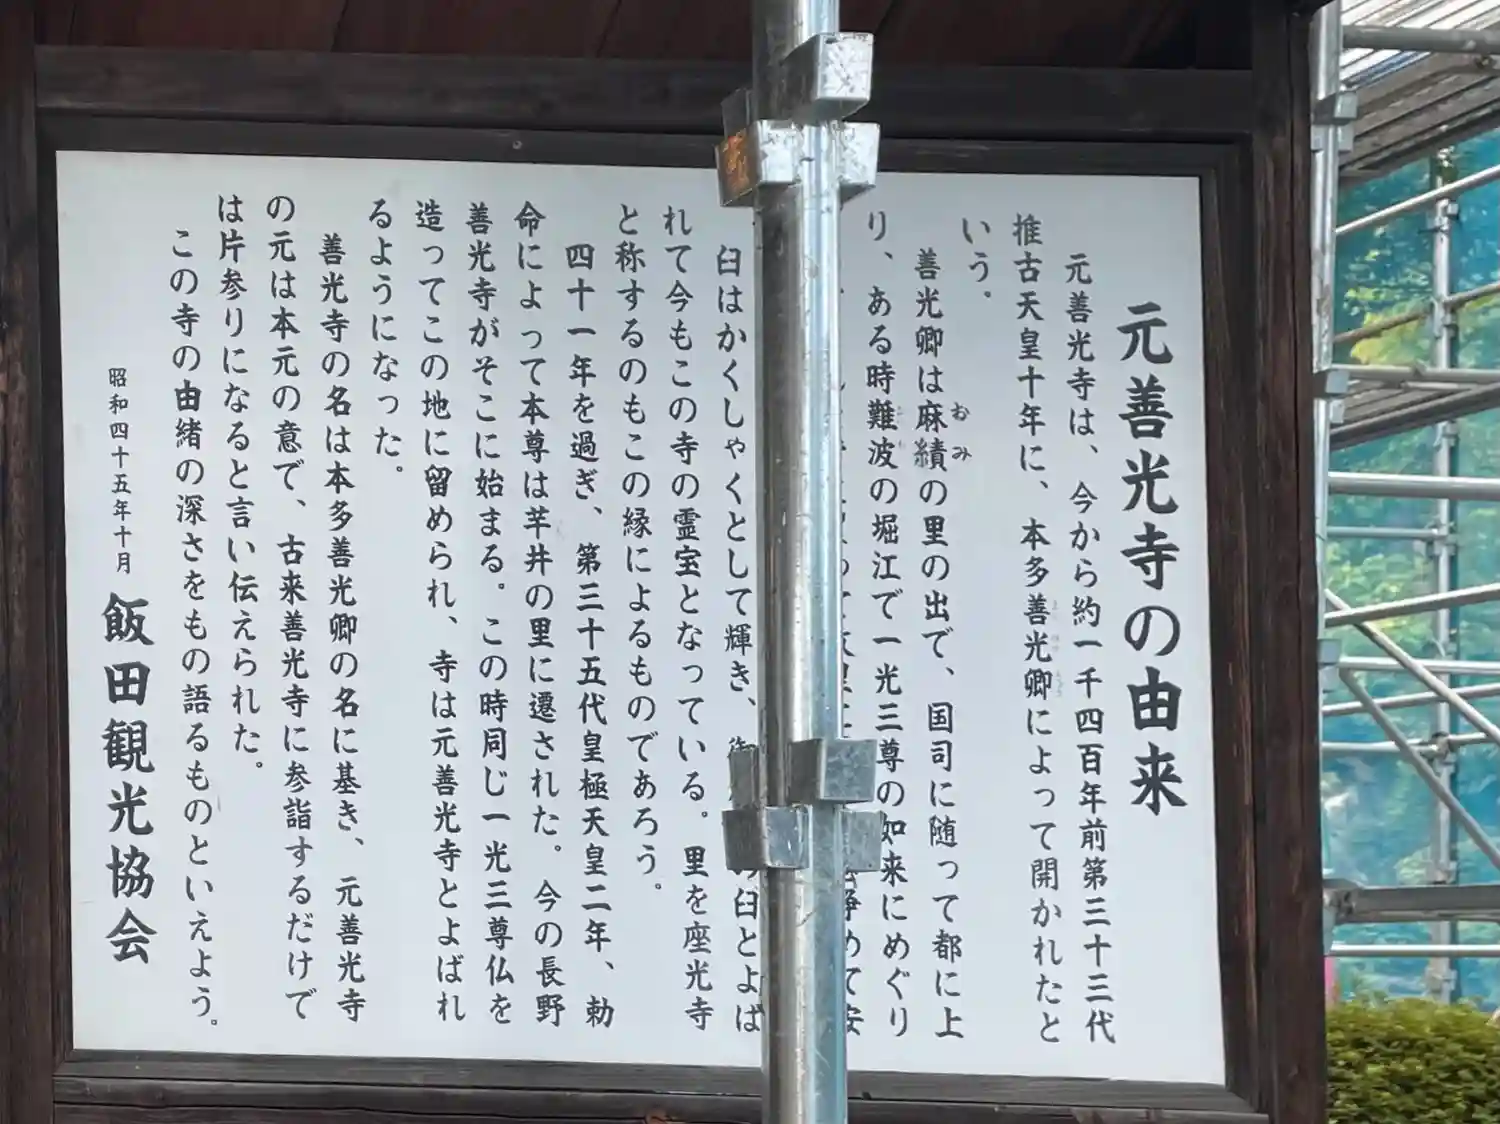 元善光寺の由来
元善光寺は、今から約一千四百年前第三十三代
推古天皇十年に、本多善光卿によって開かれたと
いう。
善光卿は麻績の里の出で、国司に随って都に上
おみ
り、ある時難波の堀江で一光三尊の如来にめぐり
浄めて安
臼はかくしゃくとして輝き、
臼とよば
れて今もこの寺の霊宝となっている。里を座光寺
と称するのもこの縁によるものであろう。
四十一年を過ぎ、第三十五代皇極天皇二年、勅
命によって本尊は芋井の里に遷された。今の長野
善光寺がそこに始まる。この時同じ一光三尊仏を
造ってこの地に留められ、寺は元善光寺とよばれ
るようになった。
善光寺の名は本多善光卿の名に基き、元善光寺
の元は本元の意で、古来善光寺に参詣するだけで
は片参りになると言い伝えられた。
この寺の由緒の深さをもの語るものといえよう。
昭和四十五年十月 飯田観光協会